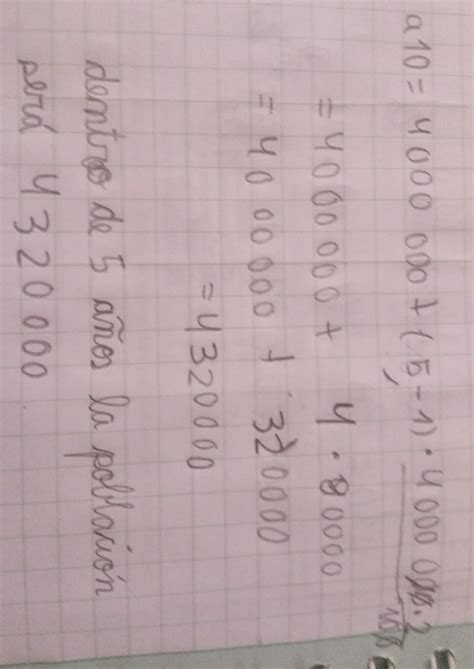 a10 = 4000 000 + (5-1) · 4000 000·2/100
= 4000000 + 4 · 80000
= 4000000 + 320000
= 4320000
dentro de 5 años la población
será 4320000